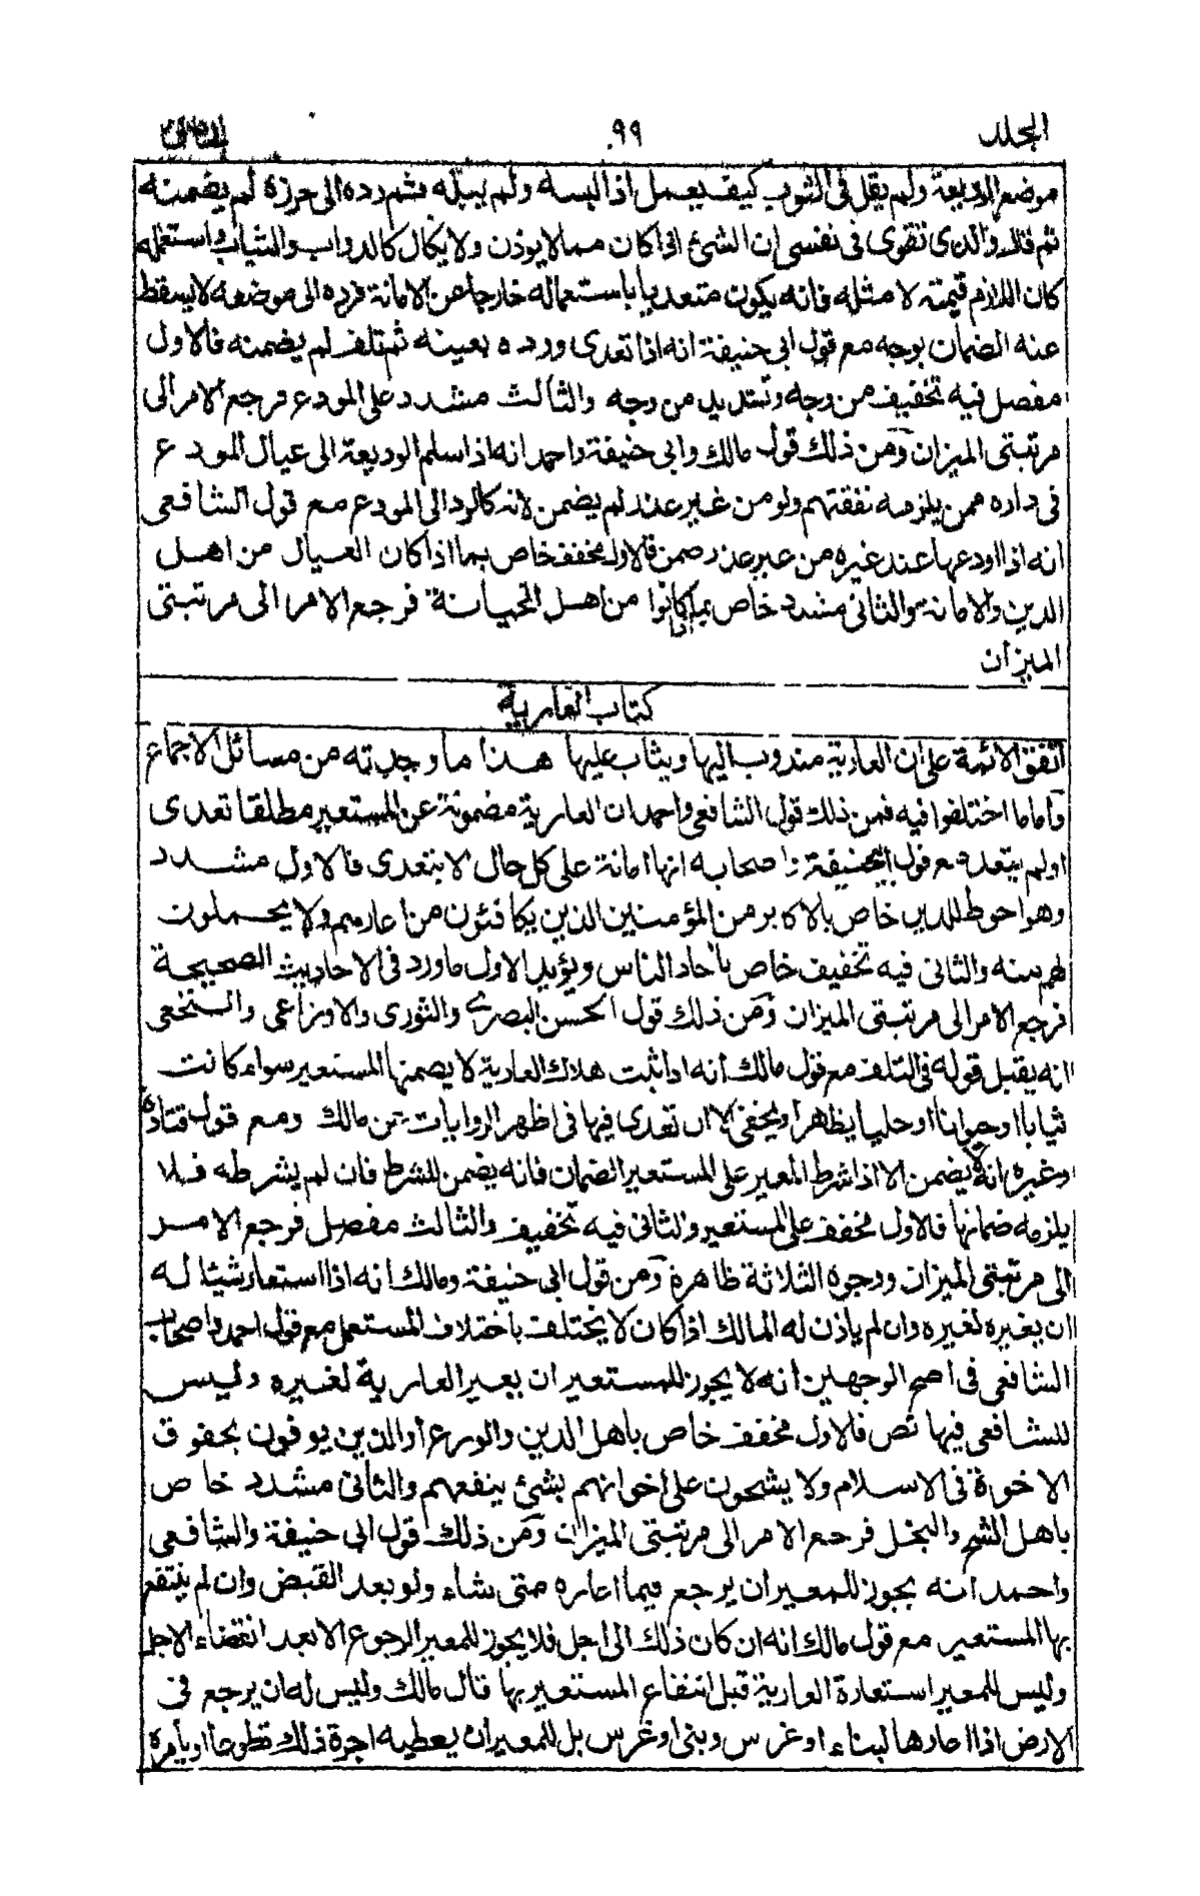 المجلد ٩٩ الثانى
موضع الوديعة ولم يقل فى الثوب كيف يعمل اذا لبسه ولم يبله ثم رده الى حرزه لم يضمنه
ثم قال والذى تقوى فى نفسى ان الشئ اذا كان مما لا يوذن ولا يكال كالدواب والثياب فاستعمله
كان اللازم قيمته لا مثله فانه يكون متعديا باستعماله خارجا عن الامانة فرده الى موضعه لا يسقط
عنه الضمان بوجه مع قول ابى حنيفة انه اذا تعدى ورده بعينه ثم تلف لم يضمنه فالاول
مفصل فيه تخفيف من وجه وتشديد من وجه والثالث مشدد على المودع فرجع الامر الى
مرتبتى الميزان ومن ذلك قول مالك وابى حنيفة واحمد انه اذا سلم الوديعة الى عيال المودع
فى داره ممن يلزمه نفقتهم ولو من غير عذر لم يضمن لانه كالرد الى المودع مع قول الشافعى
انه اذا اودعها عند غيره من غير عذر ضمن فالاول مخفف خاص بما اذا كان العيال من اهل
الدين والامانة والثانى مشدد خاص بما اذا كانوا من اهل الخيانة فرجع الامر الى مرتبتى
الميزان
كتاب العارية
اتفق الائمة على ان العارية مندوب اليها ويثاب عليها هذا ما وجدته من مسائل الاجماع
واما ما اختلفوا فيه فمن ذلك قول الشافعى واحمد ان العارية مضمونة عن المستعير مطلقا تعدى
او لم يتعد مع قول ابى حنيفة واصحابه انها امانة على كل حال لا بتعدى فالاول مشدد
وهو احوط للدين خاص بالاكابر من المؤمنين الذين يكافئون من اعارهم ولا يحملون
لهم منه والثانى فيه تخفيف خاص باحاد الناس ويؤيد الاول ما ورد فى الاحاديث الصحيحة
فرجع الامر الى مرتبتى الميزان ومن ذلك قول الحسن البصرى والثورى والاوزاعى والنخعى
انه يقبل قوله فى التلف مع قول مالك انه اذا ثبت هلاك العارية لا يضمنها المستعير سواء كانت
ثيابا او حيوانا او حليا يظهر او يخفى الا ان تعدى فيها فى اظهر الروايات عن مالك ومع قول قتادة
وغيره انه لا يضمن الا اذا شرط المعير على المستعير الضمان فانه يضمن للشرط فان لم يشرطه فلا
يلزمه ضمانها فالاول مخفف على المستعير والثانى فيه تخفيف والثالث مفصل فرجع الامر
الى مرتبتى الميزان ووجوه الثلاثة ظاهرة ومن قول ابى حنيفة ومالك انه اذا استعار شيئا له
ان يعيره لغيره وان لم ياذن له المالك اذا كان لا يختلف باختلاف المستعمل مع قول احمد واصحاب
الشافعى فى اصح الوجهين انه لا يجوز للمستعير ان يعير العارية لغيره وليس
للشافعى فيها نص فالاول مخفف خاص باهل الدين والورع او الذين يوفون بحقوق
الاخوة فى الاسلام ولا يشحون على اخوانهم بشئ ينفعهم والثانى مشدد خاص
باهل الشح والبخل فرجع الامر الى مرتبتى الميزان ومن ذلك قول ابى حنيفة والشافعى
واحمد انه يجوز للمعير ان يرجع فيما اعاره متى شاء ولو بعد القبض وان لم ينتفع
بها المستعير مع قول مالك انه ان كان ذلك الى اجل فلا يجوز للمعير الرجوع الا بعد انقضاء الاجل
وليس للمعير استعارة العارية قبل انتفاع المستعير بها قال مالك وليس له ان يرجع فى
الارض اذا اعارها لبناء او غرس وبنى او غرس بل للمعير ان يعطيه اجرة ذلك مقلوعا او يأمره